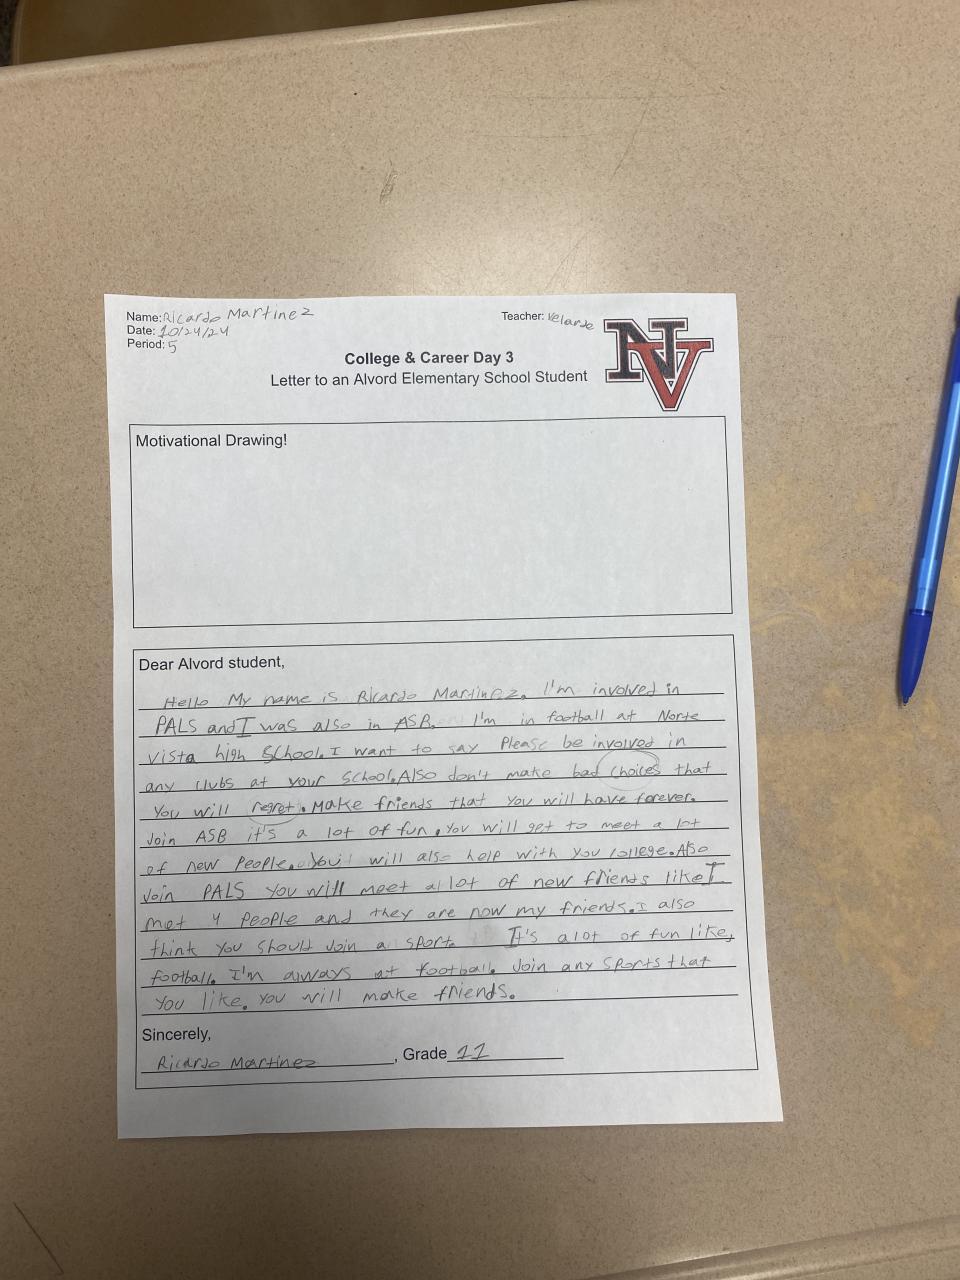 Name: Ricardo Martinez
Teacher: Velarde
Date: 10/24/24
Period: 5
NV
College & Career Day 3
Letter to an Alvord Elementary School Student
Motivational Drawing!
Dear Alvord student,
Hello My name is Ricardo Martinez. I'm involved in
PALS and I was also in ASB. I'm in football at Norte
vista high school. I want to say Please be involved in
any clubs at your school. Also don't make bad choices that
You will regret. Make friends that you will have forever.
Join ASB it's a lot of fun. You will get to meet a lot
of new people. You will also help with you college. Also
Join PALS you will meet a lot of new friends like I
met 4 people and they are now my friends. I also
think you should Join a sport. It's a lot of fun like,
football. I'm always at football. Join any sports that
You like. You will make friends.
Sincerely,
Ricardo Martinez, Grade 11